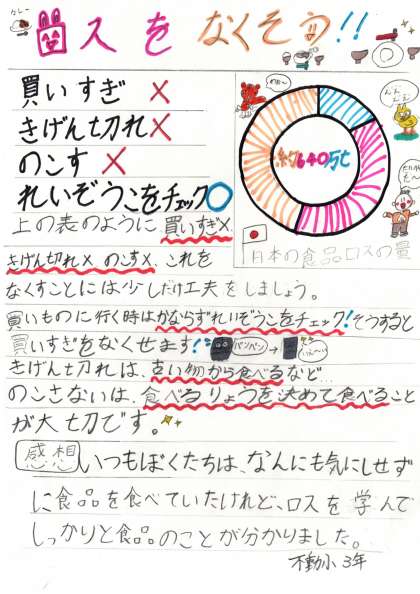 カレー
ロスをなくそう!!
買いすぎ ×
きげん切れ×
のこす ×
れいぞうこをチェック○
約640万t
日本の食品ロスの量
上の表のように買いすぎ×、
きげん切れ×のこす×、これを
なくすことには少しだけ工夫をしましょう。
買いものに行く時はかならずれいぞうこをチェック!そうすると
買いすぎをなくせます!
パンパン
→
きげん切れは、古い物から食べるなど…
のこさないは、食べるりょうを決めて食べること
が大切です。
感想
いつもぼくたちは、なんにも気にしせず
に食品を食べていたけれど、ロスを学んで
しっかりと食品のことが分かりました。
不動小 3年